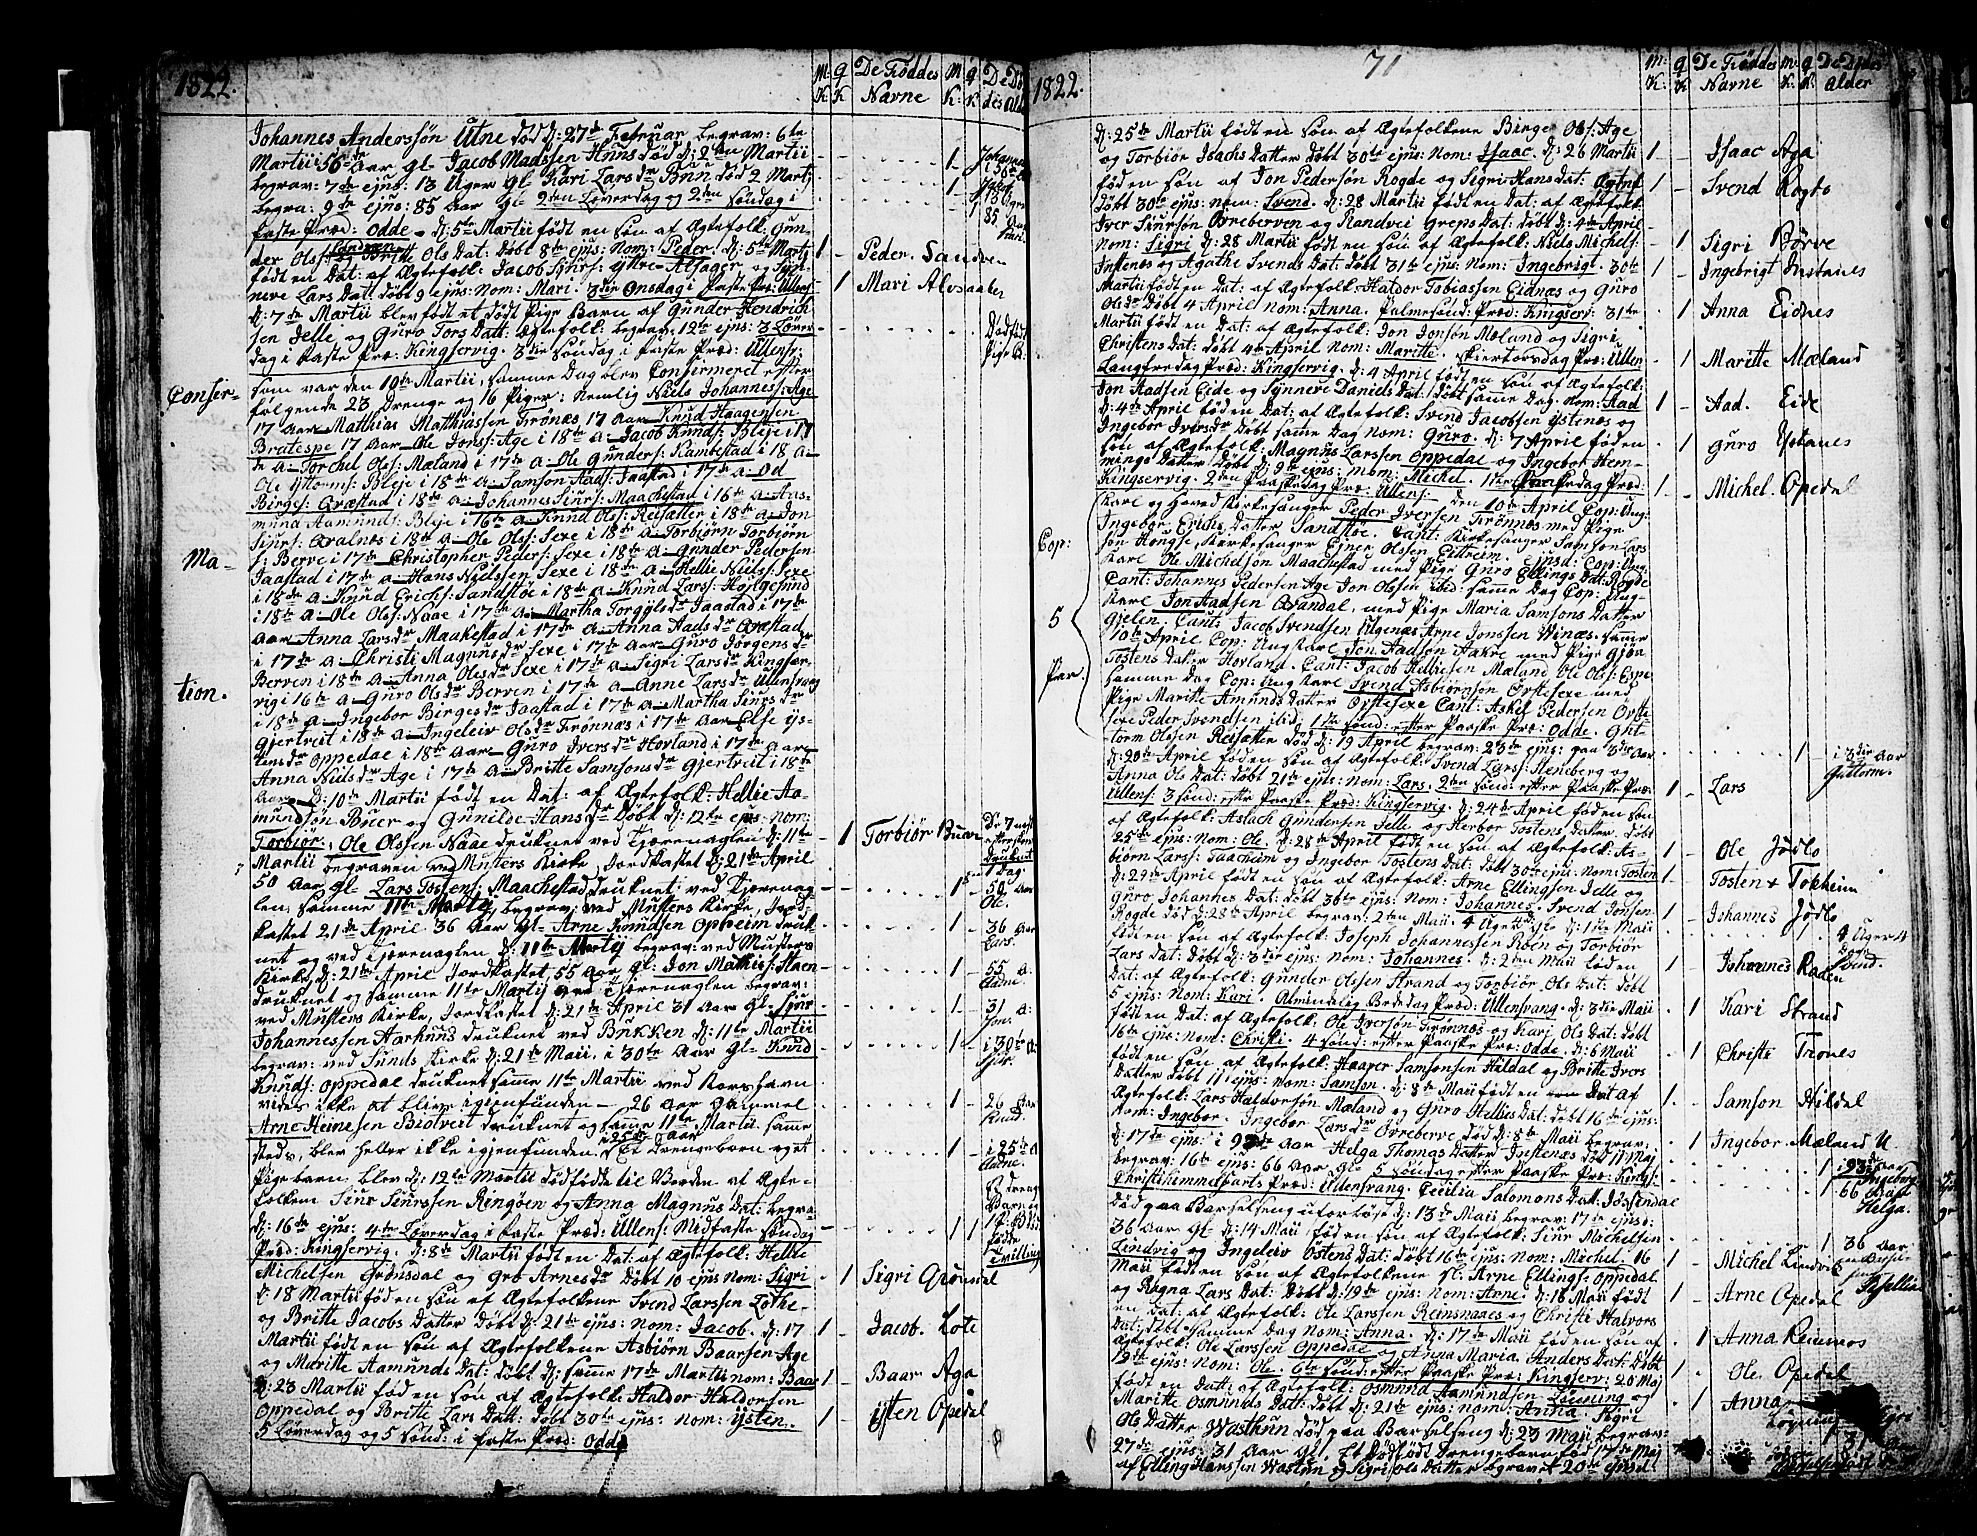 1822.
M: K
q K
De Föddes Navne
M K:
q K
De Dö- des Ald
Johannes Anderssøn Utne død d: 27de Februar begrav: 6te
Martii i 56de Aar gl Jacob Madssen Huus død d: 2den Martii
begrav: 7de ejus: 13 Uger Gl Kari Lars dr død 2 Martij
begra: 9de ejus: 85 Aar Gl 2den Løverdag og 2den Søndag i
faste Præd: Odde. d: 5te Martii født en Søn af Ægtefolk: Gun-
der Ols: Sandven Britte Ols Dat: Døbt 8de ejus: Nom: Peder. d: 5te Martij
født en Dat: af Ægtefolk: Jacob Ytre Alsager og Syn-
neve Lars Dat: døbt 9 ejus: Nom: Mari. 3die Onsdag i faste Præd: Ullens:
d: 7de Martii blev født et dødt Pige Barn af Gunder Hendrich
sen Jelle og Guro Tors Datt: Ægtefolk: begrav: 12te ejus: 3 Løver
dag i Faste Præ: Kingservig. 3die Søndag i faste Præd: Ullens:
som var den 10de Martii, samme Dag blev Confirmerit efter
følgende 23 Drenge og 16 Piger: Nemlig Niels Johanness: Age
17 Aar Mathias Matthiassen Trønæs 17 Aar Knud Haagensen
Bratespe 17 Aar Ole Jons: Age i 18de a: Jacob Knuds: Bleje i 17
de a Torchel Ols: Mæland i 17de a: Ole Gunders: Kambestad i 18 a
Ole Yttorms: Bleje i 18de a Samson Aads: Jaastad i 17de a: Od
Birges: Qvæstad i 18de a Johannes Siurs: Maachestad i 16de a Aas-
mund Aamunds: Bleje i 16te a Knud Ols: Reisæter i 18de a: Jon
Siurs: Qvalnæs i 18de a Ole Ols: Sexe i 18de a Torbiørn Torbiørn
s: Berve i 17de Christopher Peders: Sexe i 18de a Gunder Pedersen
Jaastad i 17de a Hans Nielssen Sexe i 18de a Hellie Niels: Sexe
i 18de a Knud Erichs: Sandstøe i 18de a Knud Lars:
i 18de a Ole Ols: Naae i 17de a Martha Torgylsdr Jaastad i 17de
Aar Anna Larsdr Maakestad i 17de a Anna Aadsdr Qvæstad
i 17de a Christi Magnusdr Sexe i 17de Aar Guro Jørgensdr
Berven i 18de a Anna Olesdr Sexe i 17de a Sigri Larsdr Kingser-
vig i 16de a Guro Olsdr Berven i 17de a Anne Larsdr Ullensvang
i 18de a Ingebor Birgesdr Jaastad i 17de a Martha Siursdr
Gjertveit i 18de a Ingeleiv Olsdr Trønnæs i 17de Aar Else Ys-
tensdr Oppedal i 18de Aar Guro Iversdr Hovland i 17de Aar
Anna Nielsdr Age i 17de a Britte Samsonsdr Gjertveit i 18de
Aar d: 10de Martii født en Dat: af Ægtefolk: Hellie Aa-
mundsøn Buer og Gunilde Hansdr Døbt d: 12te ejus: nom:
Torbiør. Ole Olssen Naae druknet ved Tjørenaglen d: 11te
Martii begraven ved Musters Kirke, Jordkastet d: 21de April
50 Aar gl Lars Tostens: Maachestad druknet ved Tjørenag
len, samme 11te Martij, begrav: ved Musters Kirke, Jord-
kastet 21de April 36 Aar Gl Arne Knudsen Opheim druk
net og ved Tjørenaglen d: 11te Martij begrav: ved Musters
Kirke d: 21de April Jordkastet 55 Aar Gl: Jon Mathis: Haen
druknet og samme 11te Martij ved Tjørenaglen begrav:
ved Musters Kirke, Jordkastet d: 21de April 31 Aar Gl Siur
Johannessen Aarhuus druknet ved Bukken d: 11te Martii
begrav: ved Sunds Kirke d: 21de Maii, i 30te Aar Gl Knud
Knuds: Oppedal druknet samme 11te Martii ved Korshavn
vides ikke at blive igienfunden 26 Aar Gammel
Arne Heinesen Biotveit druknet og samme 11te Martii samme
steds, blev heller ikke igienfunden. i 25de Aar Et Drengebarn og et
Pigebarn blev d: 12te Martii dødfødte til Verden af Ægte-
folkene Siur Siurssen Ringøen og Anna Magnus Dat: begra-
d: 16te ejus: 4de Løverdag i faste Præd: Ullens: Midfaste Søndag
Præd: Kingservig. d: 8de Martii født en Dat: af Ægtefolk: Hellie
Michelsen Grønsdal og Gro Arnesdr Døbt 10 ejus Nom: Sigri
d: 18 Martii føden Søn af Ægtefolkene Svend Larssen Lothe
og Britte Jacobs Datter Døbt d: 21de ejus: Nom: Jacob. d: 17
Martii født en Søn af Ægtefolkene Asbiørn Baarsen Age
og Maritte Aamunds Dat: døbt d: samme 17de Martii nom: Baar
d: 23 Martii føden Søn af Ægtefolk: Haldor Haldorsen
Oppedal og Britte Lars Datt: døbt 30te ejus: nom: Ysten.
5 Løverdag og 5 Sønd: i faste Præd: Odde
Confir-
Ma-
tion.
Peder. Sandven
Mari Alsaaker
Dødfød Pige B:
Torbiør Buar
50 Aar Ole.
36 Aar Lars.
55 a: Arne.
31 a: Jon.
i 30te a. Siur.
26 Aar Knud.
i 25de a Arne.
Sigri Grønsdal
Jacob. Lote
Baar Aga
Ysten Opedal
1822.
71
M: K:
q K
De Föddes Navne
M: K.
q K:
De Dødes Alder
d: 25de Martii født en Søn af Ægtefolkene Birge Ols: Age
og Torbiør Isachs Datter døbt 30te ejus: Nom: Isaac. d: 26 Martii
føden Søn af Jon Pedersøn Rogde og Sigri Hans Dat: Ægtef
døbt 30te ejus: nom: Svend. d: 28 Martii født en Dat: af Ægtefolk
Iver Siursøn Øvreberven og Randvei Greps Dat: døbt d: 4de April
Nom: Sigri d: 28 Martii født en Søn af Ægtefolk: Niels Michels:
Instenæs og Agathe Svends Dat: døbt 31te ejus: Nom: Ingebrigt. 30te
Martii født en Dat: af Ægtefolk: Haldor Tobiassen Eidnæs og Guro
Olsdr Døbt 4 April nom: Anna. Palmesønd: Præd: Kingserv: 31te
Martii født en Dat: af Ægtefolk: Jon Jonsøn Mæland og Sigri
Christens Dat: døbt 4de April Nom: Maritte. Skiertorsdag Præ: Ullen-
Langfredag Præd: Kingservig. d: 4 April født en Søn af Ægtefolk:
Jon Aadsen Eide og Synneve Daniels Dat: døbt samme Dag. Nom: Aad
d: 4de April føden Dat: af Ægtefolk: Svend Jacobsen Ystenæs og
Ingebor Iversdr Døbt samme Dag Nom: Guro. d: 7 April føden
Søn af Ægtefolk: Magnus Larssen Oppedal og Ingebor Hem-
mings Datter Døbt d: 9de ejus: nom: Michel. 1ste Paaskedag Præd:
Kingservig. 2den Paaskedag Præ: Ullens: den 10de April Cop: Ung:
karl og Hoved Kirkesanger Peder Iversen Trønnæs med Pige
Ingebor Erichs Datter Sandstøe. Cant: Kirkesanger Samson Lars
søn Hongse Kirkesanger Einer Olssen Eitreim. Ejusd: Cop: Ung
karl Ole Michelsøn Maachestad med Pige Guro Ellings Dat: Rogde
Cant: Johannes Pedersen Age Jon Olssen ibid: samme Dag Cop: Ung-
karl Jon Aadsen Qvandal, med Pige Maria Samsons Datter
Gjelen, Cant: Jacob Svendsen Age Jonssen Vinæs. samme
10de April Cop: Ungkarl Jon Aadsøn Aakre med Pige Gjøa
Tostens Datter Hovland. Cant: Jacob Helliesen Mæland Ole Ols: Espe
samme Dag Cop: Ung karl Svend Asbiørnsøn Ørstesexe med
Pige Maritte Amunds Datter Opstesexe Cant: Askel Pedersen Øvste
sexe Peder Svendsen ibid. 1ste Sønd: efter Paaske Præ: Odde. Gut-
torm Olssen Reisætter død d: 19 April begrav: 23de ejus: paa 3die Aar
d: 20de April føden Søn af Ægtefolk: Svend Lars: Steneberg og
Anna Ols Dat: Døbt 21de ejus: Nom: Lars. 2den Sønd: efter Paaske Præ:
Ullens: 3 Sønd: efter Paaske Præd: Kingservig. d: 24de April føden Søn
af Ægtefolk: Aslach Gundersen Jelle og Herbor Tostens Datter døbt
25de ejus: Nom: Ole. d: 28de April født en Søn af Ægtefolk: As-
biørn Lars: Taacheim og Ingebor Tostens Dat: døbt 30te ejus: nom: Tosten
d: 29de April født en Søn af Ægtefolk: Arne Ellingsen Jelle og
Guro Johannes Dat: døbt 30te ejus: Nom: Johannes. Svend Jonsen
Rogde død d: 28de April begrav: 2den Maii 4 Uger 4 d: gl d: 1ste Maii
født en Søn af Ægtefolk: Joseph Johannessen Roen og Torbiør
Lars Dat: døbt d: 3die ejus: Nom: Johannes. d: 2den Maii føden
Dat: af Ægtefolk: Gunder Olssen Strand og Torbiør Ols Dat: døbt
5 ejus: Nom: Kari. Almindelig Bededag Præd: Ullensvang. d: 3die Maii
født en Dat: af Ægtefolk: Ole Iversøn Trønnæs og Kari Ols Dat: døbt
16te ejus: Nom: Christi. 4 Sønd: efter Paaske Præ: Odde. d: 6 Maii
født en Søn af Ægtefolk: Haaver Samsonsen Hildal og Britte Ivers
Datter døbt 11 ejus: Nom: Samson. d: 8de Maii født en Dat af
Ægtefolk: Lars Haldorsøn Mæland og Guro Hellies Dat: døbt 16te ejus:
Nom: Ingebor. Ingebor Larsdr Øvreberve død d: 8de Maii begrav:
d: 17de ejus: i 93de Aar Helga Thomas Datter Instenæs død 11 Maj
begrav: 16te ejus: 66 Aar Gl 5 Søndag efter Paaske Præ: Kings:
Christihimmelfarts Præd: Ullensvang. Cecilia Salomons Datt: Jøssendal
død paa Barselseng uforløst d: 13de Maii begrav: 17de ejus:
36 Aar gl: d: 14 Maii føden Søn af Ægtefolk: Siur Michelsen
Lindvig og Ingeleiv Østens Dat: døbt 16te ejus: Nom: Michel. 16
Maii født en Søn af Ægtefolkene Arne Ellings: Oppedal
og Ragna Lars Dat: Døbt d: 19te ejus: Nom: Arne. d: 18 Maii født
en Dat: af Ægtefolk: Ole Larssen Reinsnaaes og Christi Halvors
Dat: døbt samme Dag Nom: Anna. d: 17de Maii føden Søn af
Ægtefolk: Ole Larssen Oppedal og Anna Maria Anders Dat: Døbt
19de ejus: Nom: Ole. 6te Sønd: efter Paaske Præ: Kingserv: 20 Maj
født en Datt: af Ægtefolk: Osmund Aamundsen Løining og
Maritte Osmunds Datt: døbt d: 21de ejus: nom: Anna. Sigri
Ols Datter Wasthun død paa Barselseng d: 23 Maii begrav:
27de ejus: 31 Aar gl. Et Dødfødt Drengebarn fød 17de Maj
af Elling Hanssen Wastun og Sigri Ols Datter begravet 20de ejusd:
Cop:
5
Par.
Isaac Aga
Svend Rogde
Sigri Börve
Ingebrigt Instanes
Anna Eidnes
Maritte Mæland
Aad. Eide
Guro Ystanes
Michel. Opedal
i 3die Aar Guttorm.
Lars
Ole Jødlo
Tosten Tokheim
Johannes Jødlo
4 Uger 4 Dage Svend.
Johannes Raden
Kari Strand
Christi Trones
Samson Hildal
Ingebor Mæland U
i 93de Aar Ingebor
66 Aar Helga.
36 Aar
Michel Lindvik
Arne Opedal
Anna Reinnos
Ole. Opedal
Anna Løyning
Sigri
31